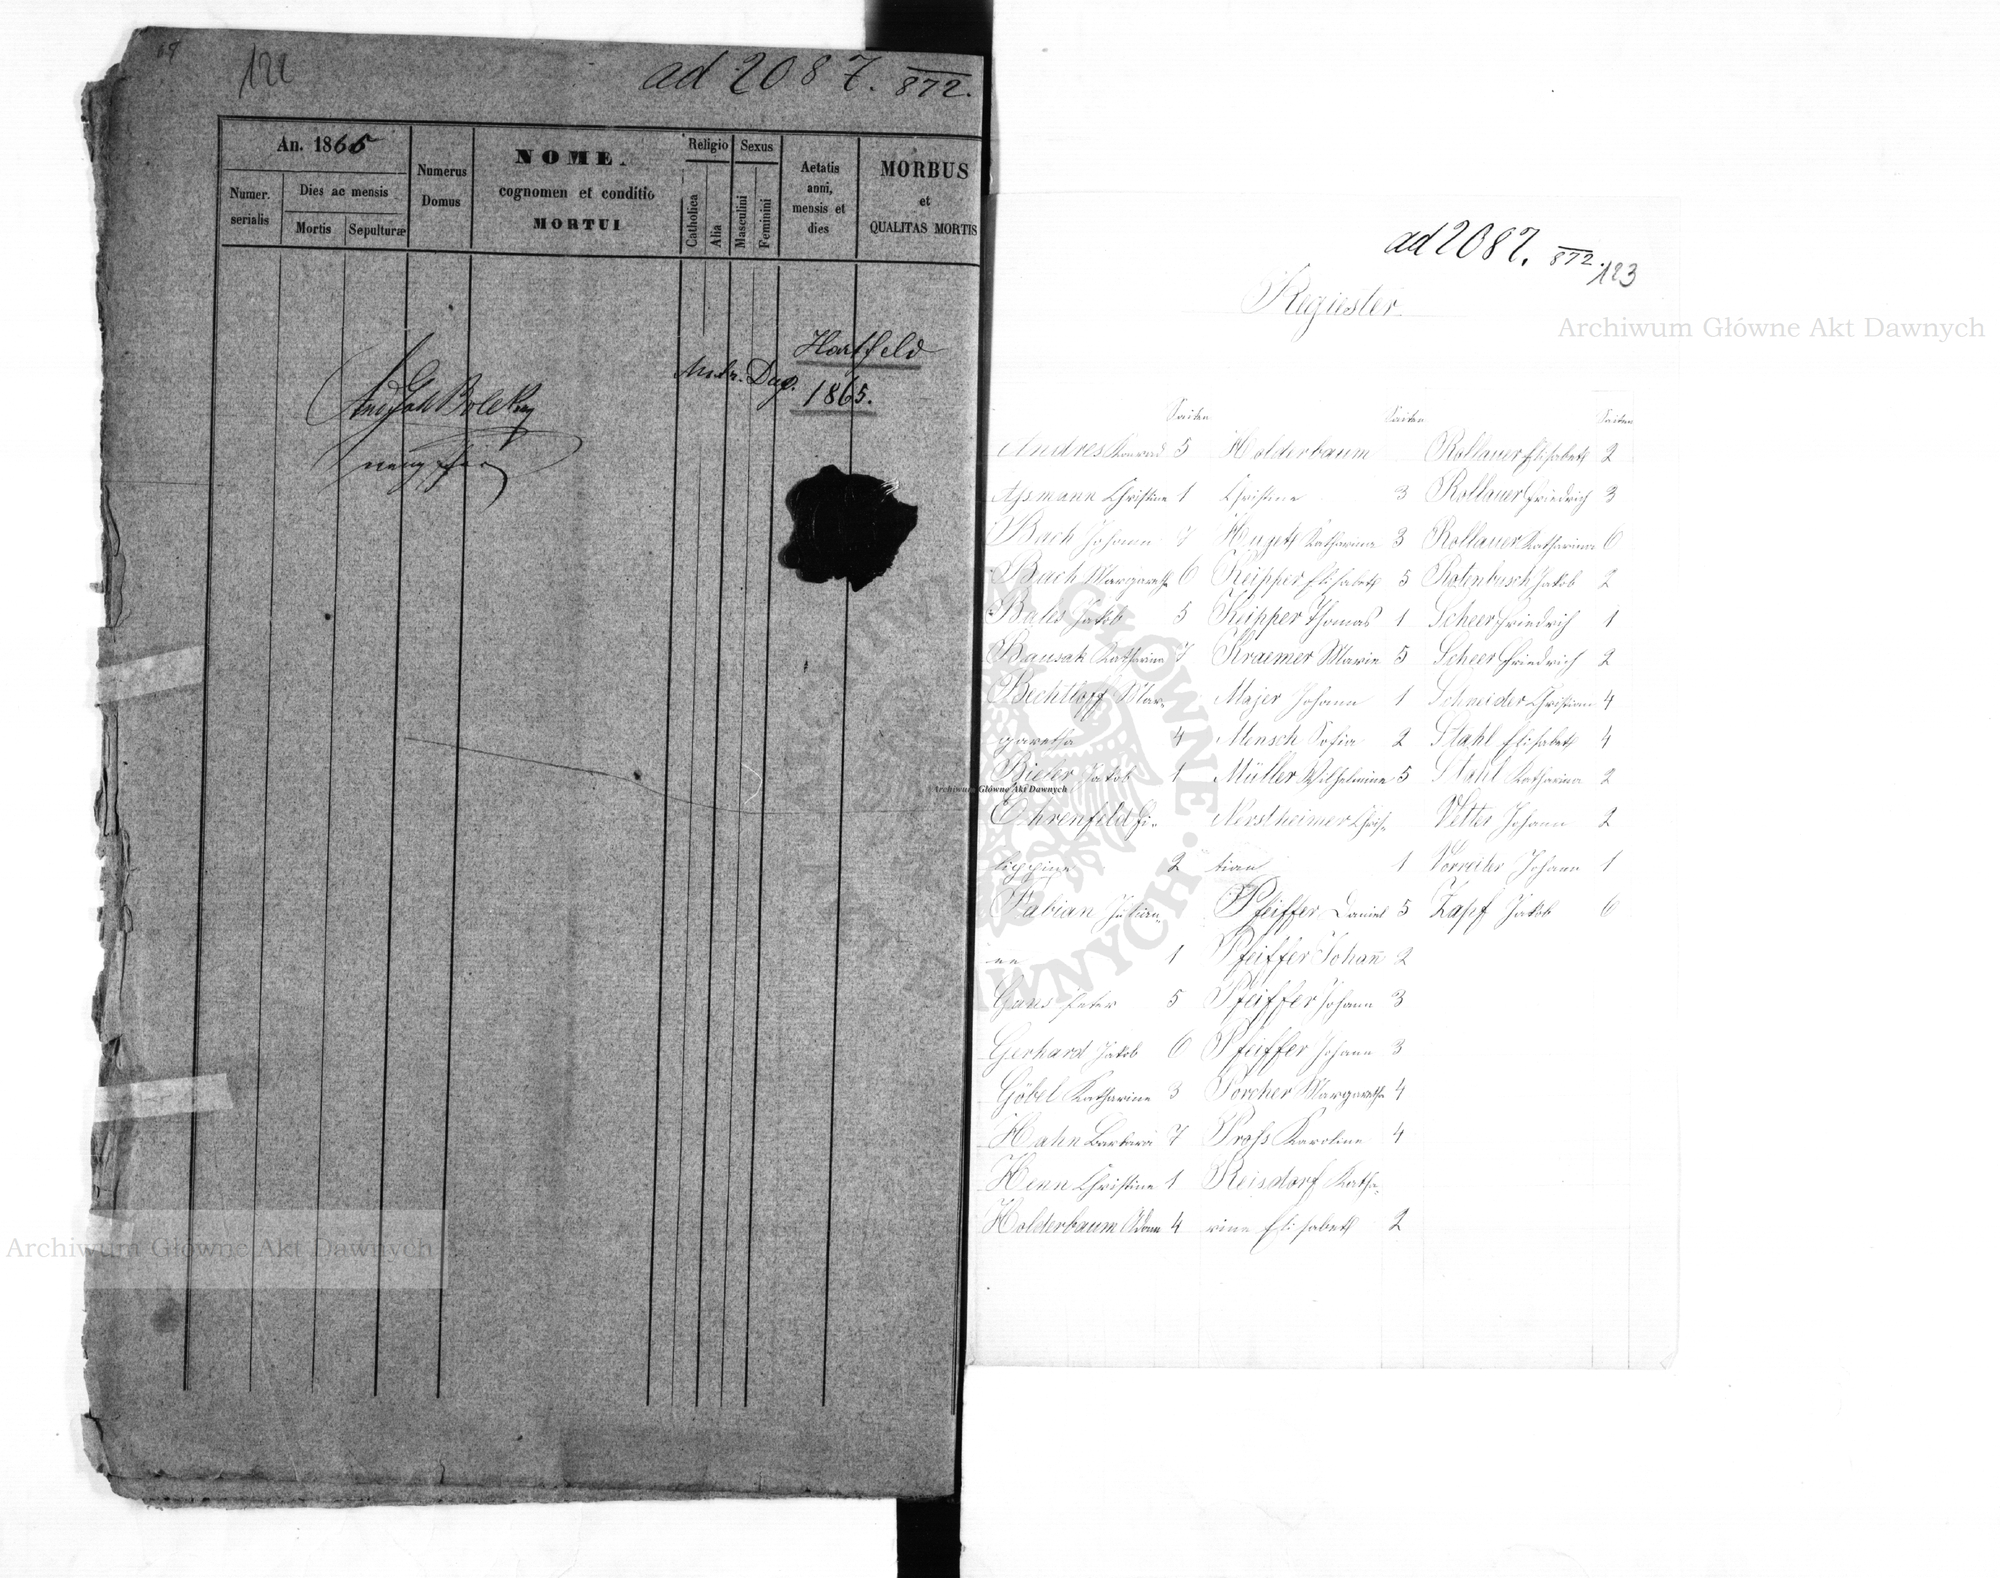 122
ad 2087. 872.
An. 1865
Numer. serialis
Dies ac mensis
Mortis
Sepulturæ
Numerus Domus
NOME.
cognomen et conditio
MORTUI
Religio
Catholica
Alia
Sexus
Masculini
Feminini
Aetatis anni, mensis et dies
MORBUS
et
QUALITAS MORTIS
Hartfeld
1865.
ad 2087. 872.
123
Regiester
Archiwum Główne Akt Dawnych
Seiten
Andres Konrad 5
Assmann Christine 1
Bach Johann 7
Bach Margareth 6
Bales Jakob 5
Bausak Katharina 7
Bechtloff Mar-
garetha 4
Bieler Jakob 1
Ehrenfeld Fi-
lippine 2
Fabian Julian-
ne 1
Gans Peter 5
Gerhard Jakob 6
Göbel Katharine 3
Hahn Barbara 7
Henn Christine 1
Holderbaum Adam 4
Seiten
Holderbaum
Christine 3
Katharina 3
Keipper Elisabeth 5
Keipper Thomas 1
Kraemer Marie 5
Majer Johann 1
Mensch Sofia 2
Müller Wilhelmine 5
Nerstheimer Chris-
tian 1
Pfeiffer Daniel 5
Pfeiffer Johañ 2
Pfeiffer Johann 3
Pfeiffer Johann 3
Porcher Margaretha 4
Pross Karoline 4
Reisdorf Katha-
rine Elisabeth 2
Seiten
Rollauer Elisabeth 2
Rollauer Friedrich 3
Rollauer Katharina 6
Rotenbusch Jakob 2
Scheer Friedrich 1
Scheer Friedrich 2
Schneider Christian 4
Stahl Elisabeth 4
Stahl Katharina 2
Vetter Johann 2
Vorreiter Johann 1
Zapf Jakob 6
Archiwum Główne Akt Dawnych
GŁÓWNE
DAWNYCH
Archiwum Główne Akt Dawnych